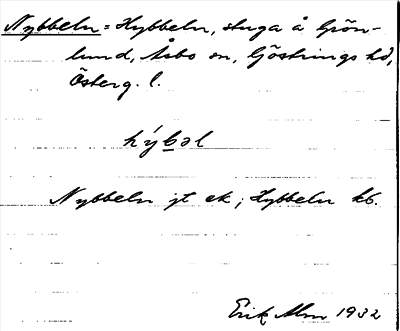 Nybbeln = Hybbeln, stuga å Grön-
lund, Åsbo sn, Göstrings hd,
Österg. l.
hýbəl
Nybbeln jt ek; Hybbeln kb.
Erik Alm 1932